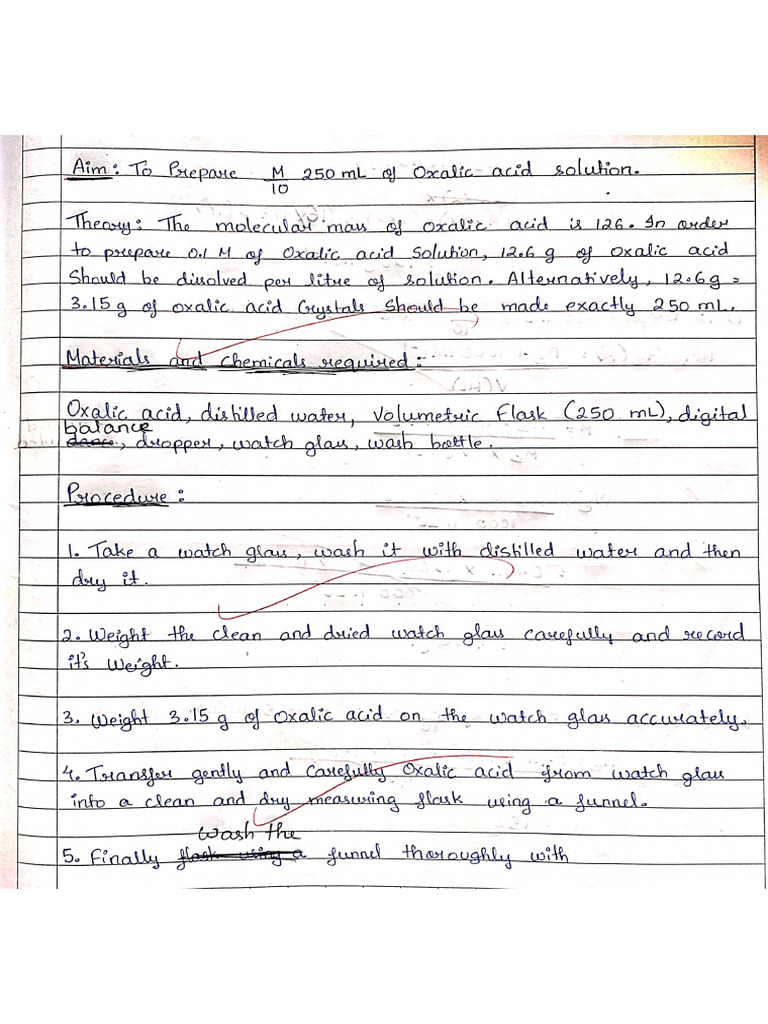 Aim: To Prepare M/10 250 mL of Oxalic acid solution.
Theory: The molecular mass of oxalic acid is 126. In order
to prepare 0.1 M of Oxalic acid Solution, 12.6 g of oxalic acid
Should be dissolved per litre of solution. Alternatively, 12.6g =
3.15 g of oxalic acid Crystals Should be made exactly 250 mL.
Materials and Chemicals required:
Oxalic acid, distilled water, Volumetric Flask (250 mL), digital
balance, dropper, watch glass, wash bottle.
Procedure:
1. Take a watch glass, wash it with distilled water and then
dry it.
2. Weight the clean and dried watch glass carefully and record
it's Weight.
3. Weight 3.15 g of Oxalic acid on the watch glass accurately.
4. Transfer gently and carefully Oxalic acid from watch glass
into a clean and dry measuring flask using a funnel.
wash the
5. Finally flask using a funnel thoroughly with